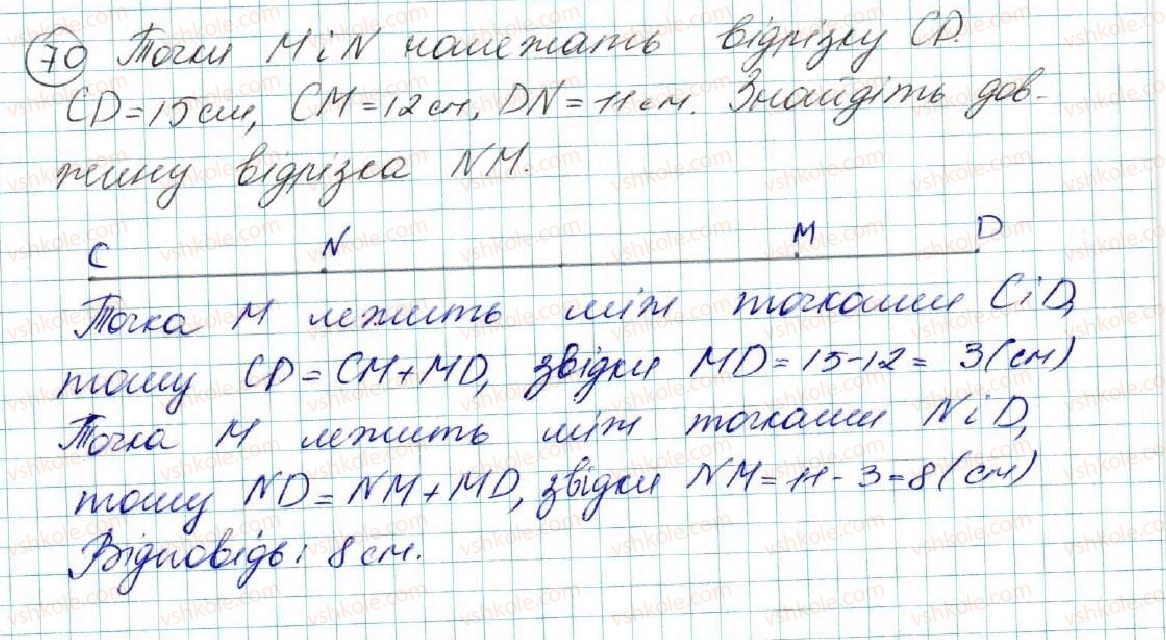 70 Точки M і N належать відрізку CD.
CD=15см, CM=12см, DN=11см. Знайдіть дов-
жину відрізка NM.
C N M D
Точка M лежить між точками C і D,
тому CD=CM+MD, звідки MD=15-12=3(см)
Точка M лежить між точками N і D,
тому ND=NM+MD, звідки NM=11-3=8(см)
Відповідь: 8см.